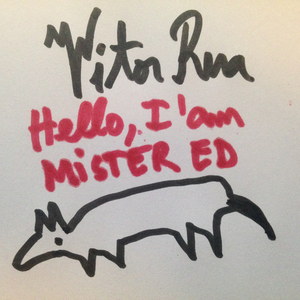 Vitor Rua
Hello, I'am
MiSTER ED